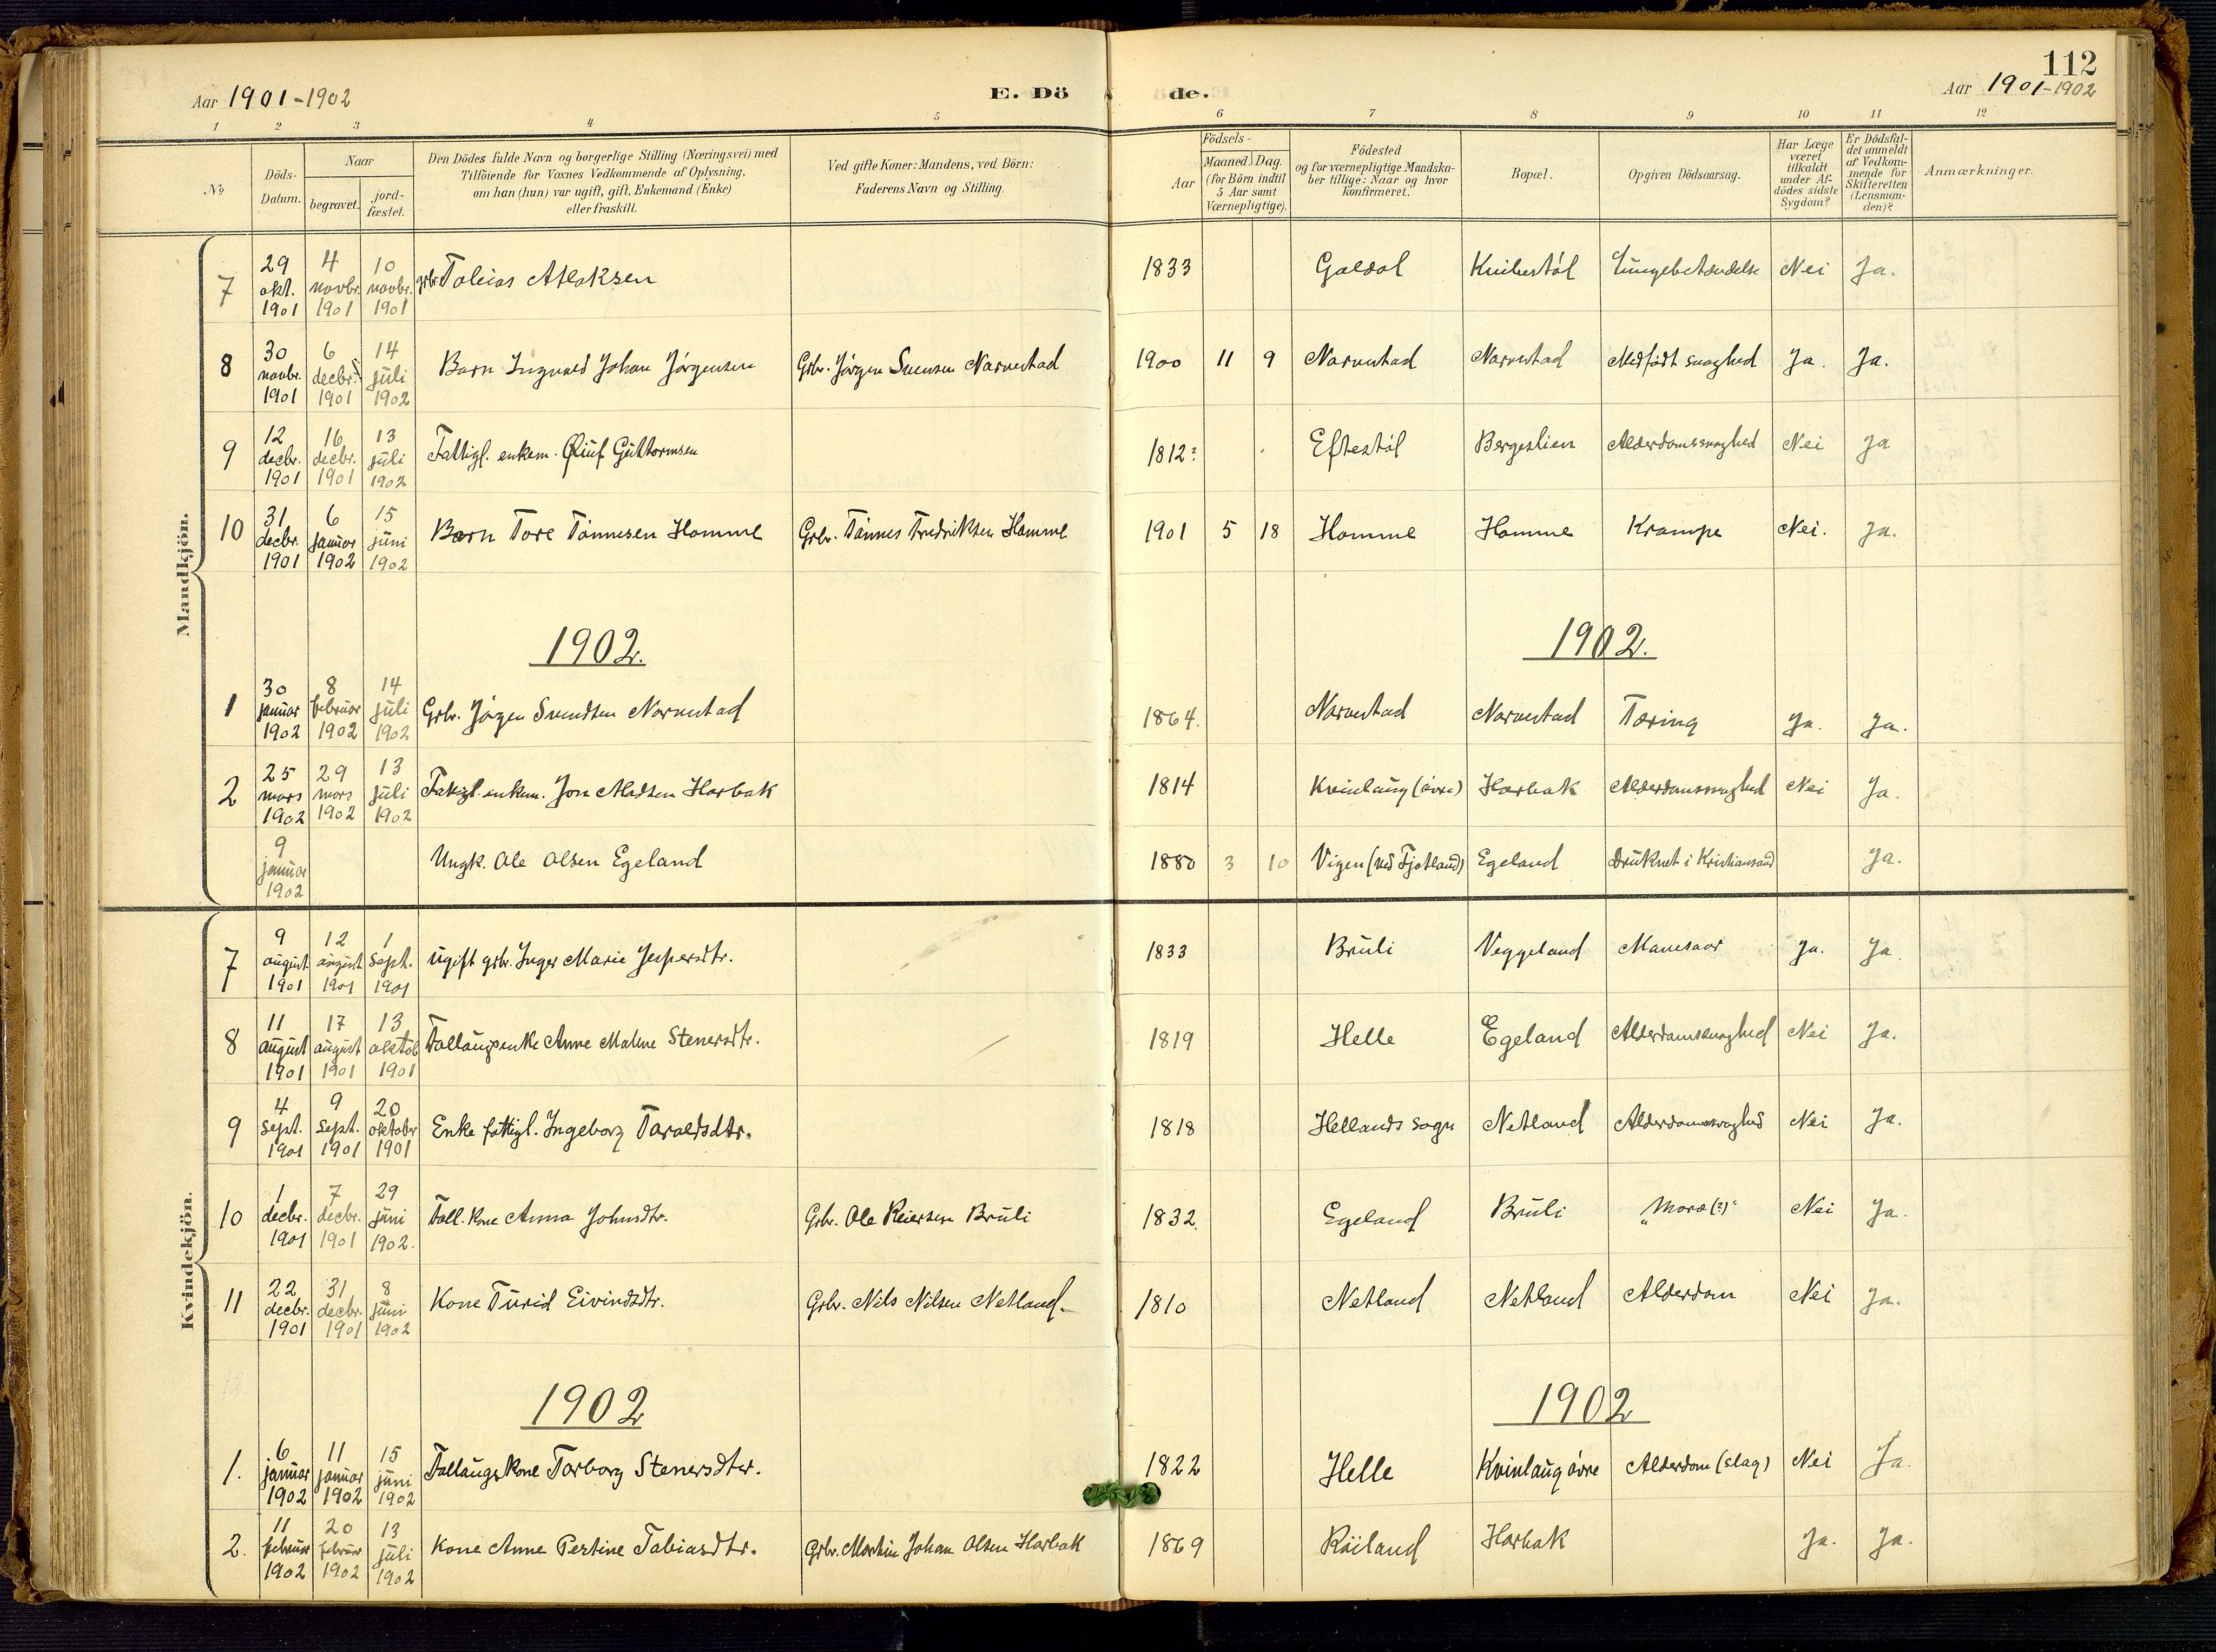 112
Aar 1901-1902 E. Dö de. Aar 1901-1902
1 2 3 4 5 6 7 8 9 10 11 12
№ Döds-Datum. Naar begravet. jordfæstet. Den Dödes fulde Navn og borgerlige Stilling (Næringsvei) med Tilföiende for Voxnes Vedkommende af Oplysning, om han (hun) var ugift, gift, Enkemand (Enke) eller fraskilt. Ved gifte Koner: Mandens, ved Börn: Faderens Navn og Stilling. Aar Födsels- Maaned. Dag. (for Börn indtil 5 Aar samt Værnepligtige). Födested og for værnepligtige Mandskaber tillige: Naar og hvor konfirmeret. Bopæl. Opgiven Dödsaarsag. Har Læge været tilkaldt under Afdödes sidste Sygdom? Er Dödsfaldet anmeldt af Vedkommende for Skifteretten (Lensmanden)? Anmærkninger.
Mandkjön.
7 29 okt. 1901 4 novbr. 1901 10 novbr. 1901 grbr. Tobias Atlaksen 1833 Galdal Knibestöl Lungebetændelse Nei Ja.
8 30 novbr. 1901 6 decbr. 1901 14 juli 1902 Barn Ingvald Johan Jörgensen Grbr. Jörgen Svensen Narvestad 1900 11 9 Narvestad Narvestad Medfödt svaghed Ja. Ja.
9 12 decbr. 1901 16 decbr. 1901 13 juli 1902 Fattigl. enkem. Oluf Guttormsen 1812? Eftestöl Bergeslien Alderdomssvaghed Nei Ja
10 31 decbr. 1901 6 januar 1902 15 juni 1902 Barn Tore Tönnesen Homme Grbr. Tönnes Fredriksen Homme 1901 5 18 Homme Homme Krampe Nei. Ja.
1902. 1902.
1 30 januar 1902 8 februar 1902 14 juli 1902 Grbr. Jörgen Svendsen Narvestad 1864. Narvestad Narvestad Tæring Ja. Ja.
2 25 mars 1902 29 mars 1902 13 juli 1902 Fattigl. enkem. Jon Madsen Harbak 1814 Kvinlaug (övre) Harbak Alderdomssvaghed Nei Ja.
9 januar 1902 Ungk. Ole Olsen Egeland 1880 3 10 Vigen (ved Fjotland) Egeland Druknet i Kristiansand Ja.
Kvindekjön.
7 9 august 1901 12 august 1901 1 sept. 1901 Ugift grbr. Inger Marie Jespersdtr. 1833 Bruli Veggeland Mavesaar Ja. Ja.
8 11 august 1901 17 august 1901 13 oktob 1901 Follaugsenke Anne Malene Stenersdtr. 1819 Helle Egeland Alderdomssvaghed Nei Ja.
9 4 sept. 1901 9 sept. 1901 20 oktober 1901 Enke fattigl. Ingeborg Taraldsdtr. 1818 Hellands sogn Netland Alderdomssvaghed Nei Ja.
10 1 decbr. 1901 7 decbr. 1901 29 juni 1902. Foll. kone Anna Johnsdtr. Grbr. Ole Reiersen Bruli 1832. Egeland Bruli "Mora (?)" Nei Ja.
11 22 decbr. 1901 31 decbr. 1901 8 juni 1902 Kone Turid Eivindsdtr. Grbr. Nils Nilsen Netland 1810 Netland Netland Alderdom Nei Ja.
1902 1902
1. 6 januar 1902 11 januar 1902 15 juni 1902 Follaugskone Torborg Stenersdter. 1822 Helle Kvinlaug övre Alderdom (slag) Nei Ja.
2. 11 februar 1902 20 februar 1902 13 juli 1902 Kone Anne Pestine Tobiasdtr. Grbr. Martin Johan Olsen Harbak 1869 Röiland Harbak Ja. Ja.